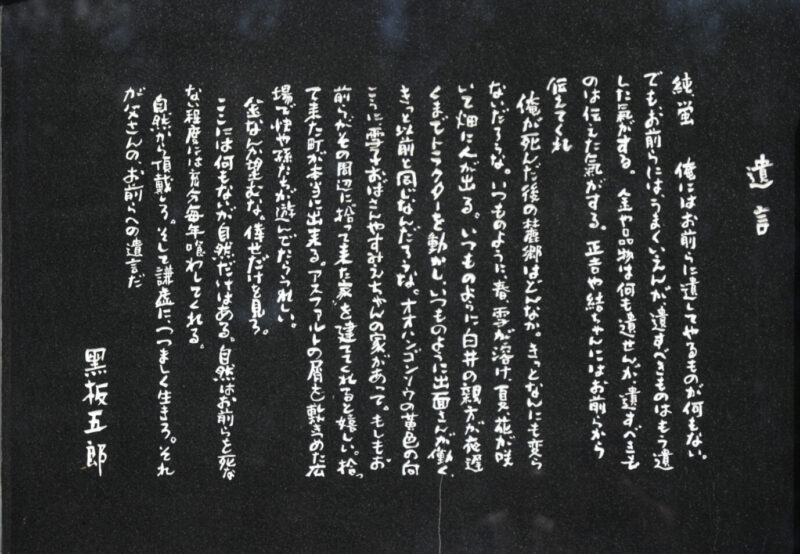 遺言
純 蛍　俺にはお前らに遺してやるものが何もない。
でも、お前らには、うまくいえんが遺すべきものはもう遺
した気がする。金や品物は何も遺せんが、遺すべきも
のは伝えた氣がする。正吉や結ちゃんにはお前らから
伝えてくれ
俺が死んだ後の麓郷はどんなか。きっとなんにも変ら
ないだろうな。いつものように、春、雪が溶け、夏、花が咲
いて畑に人が出る。いつものように白井の親方が夜遅
くまでトラクターを動かし、いつものように出面さんが働く。
きっと以前と同じなんだろうな。オオハンゴンソウの黄色の向
こうに雪子おばさんやすみえちゃんの家があって。もしもお
前らがその周辺に拾って来た家を建ててくれると嬉しい。拾っ
て来た町が本当に出来る。アスファルトの屑を敷きつめた広
場で快や孫たちが遊んでたらうれしい。
金なんか望むな。倖せだけを見ろ。
ここには何もないが自然だけはある。自然はお前らを死な
ない程度には充分毎年喰わしてくれる。
自然から頂戴しろ。そして謙虚に、つつましく生きろ。それ
が父さんの、お前らへの遺言だ
黒板五郎